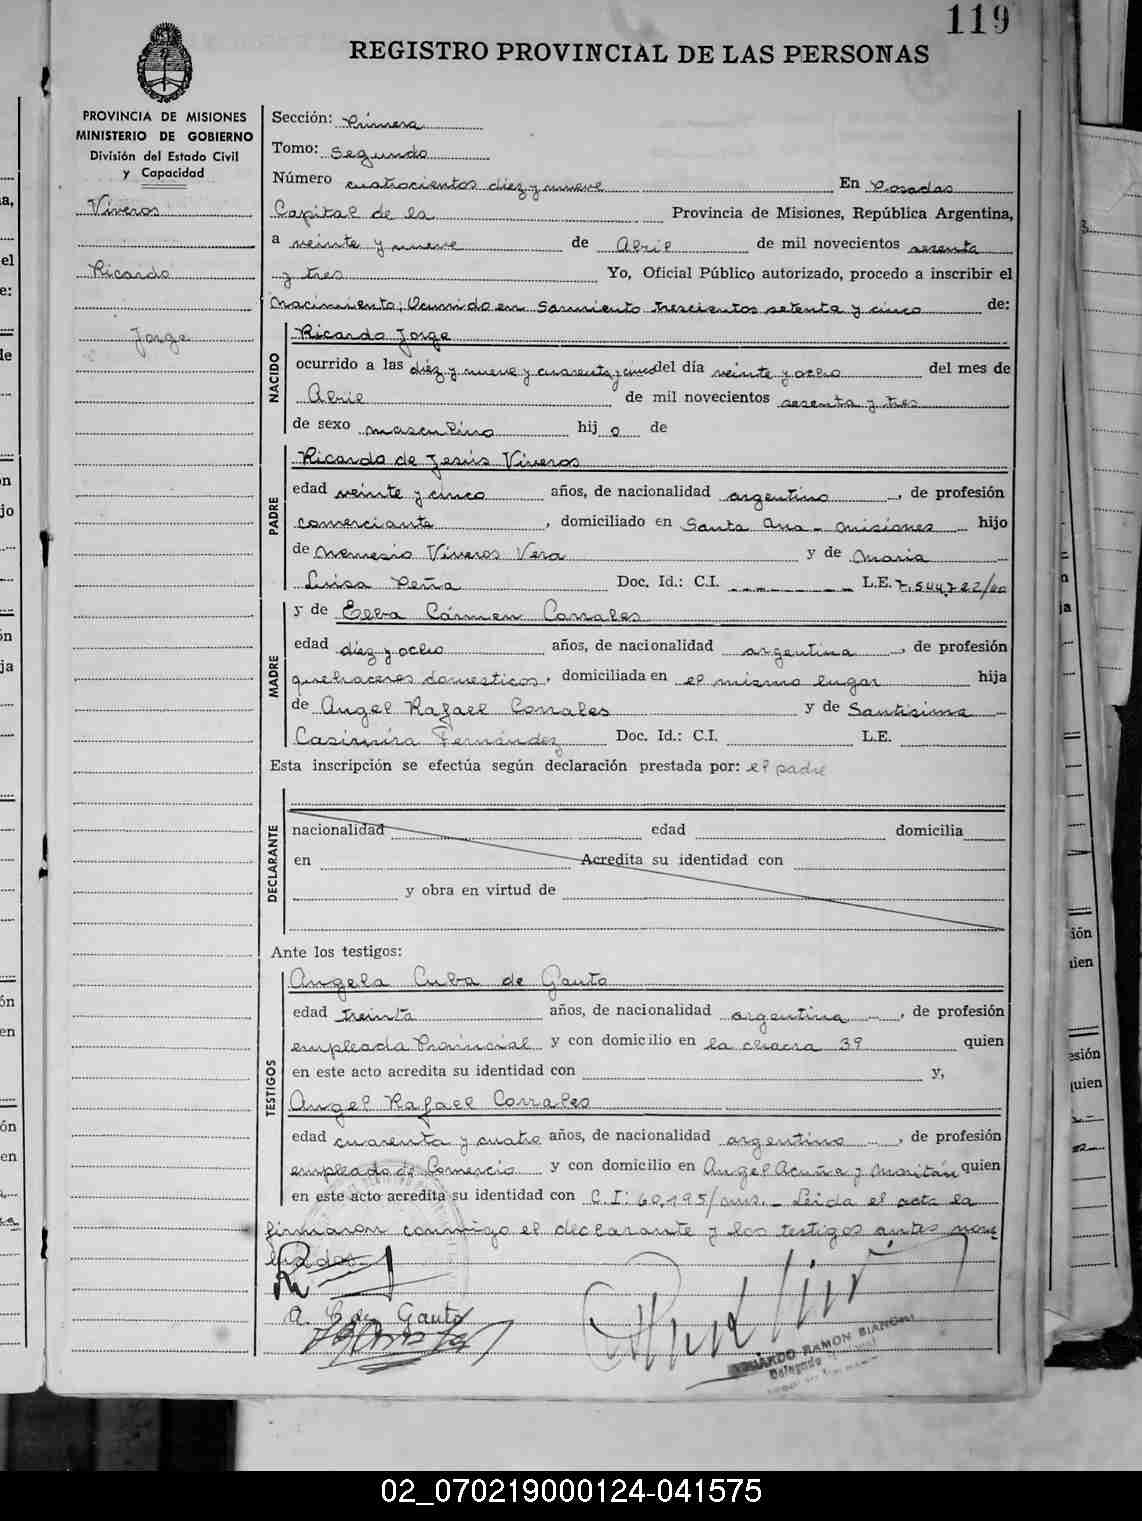 119
REGISTRO PROVINCIAL DE LAS PERSONAS
PROVINCIA DE MISIONES
MINISTERIO DE GOBIERNO
División del Estado Civil
y Capacidad
Viveros
Ricardo
Jorge
Sección: Primera
Tomo: Segundo
Número cuatrocientos diez y nueve En Posadas
Capital de la Provincia de Misiones, República Argentina,
a veinte y nueve de Abril de mil novecientos sesenta
y tres Yo, Oficial Público autorizado, procedo a inscribir el
Nacimiento; Ocurrido en Sarmiento trescientos setenta y cinco de:
NACIDO
Ricardo Jorge
ocurrido a las diez y nueve y cuarenta y cinco del día veinte y ocho del mes de
Abril de mil novecientos sesenta y tres
de sexo masculino hijo de
PADRE
Ricardo de Jesús Viveros
edad veinte y cinco años, de nacionalidad argentino, de profesión
comerciante, domiciliado en Santa Ana - Misiones hijo
de Nemesio Viveros Vera y de Maria
Luisa Peña Doc. Id.: C.I. L.E. 7.544.722/00
MADRE
y de Elba Cármen Corrales
edad diez y ocho años, de nacionalidad argentina, de profesión
quehaceres domesticos, domiciliada en el mismo lugar hija
de Angel Rafael Corrales y de Santisima
Casimira Fernández Doc. Id.: C.I. L.E.
Esta inscripción se efectúa según declaración prestada por: el padre
DECLARANTE
nacionalidad edad domicilia
en Acredita su identidad con
y obra en virtud de
Ante los testigos:
TESTIGOS
Angela Cuba de Gauto
edad treinta años, de nacionalidad argentina, de profesión
empleada Provincial y con domicilio en la chacra 39 quien
en este acto acredita su identidad con y,
Angel Rafael Corrales
edad cuarenta y cuatro años, de nacionalidad argentino, de profesión
empleado de Comercio y con domicilio en Angel Acuña y Moritán quien
en este acto acredita su identidad con C.I: 60.195/mis. - Leida el acta la
firmaron conmigo el declarante y los testigos antes nom
brados
A. C. de Gauto
EDUARDO RAMON BIANCHI
Delegado
02_070219000124-041575